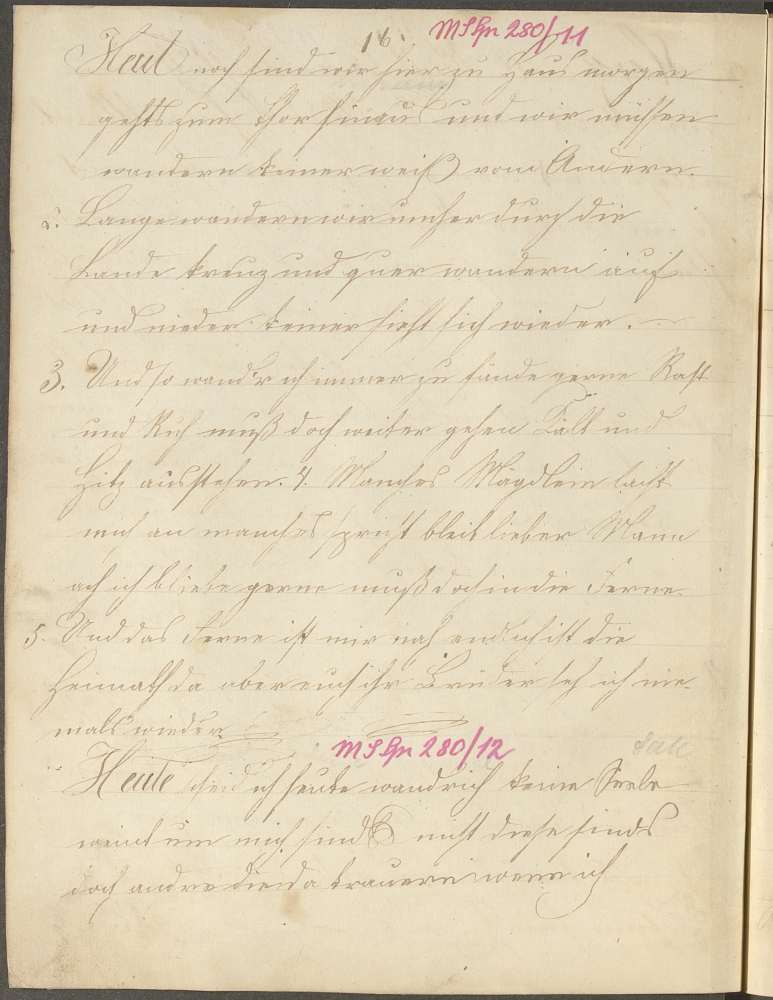 16. MSHn 280/11
Heut noch sind wir hier zu Haus morgen
gehts zum Thor hinaus und wir müssen
wandern keiner weiß vom Andern.
2. Lange wandern wir umher durch die
Lande kreuz und quer wandern auf
und nieder keiner sieht sich wieder.
3. Und so wand'r ich immer zu fände gerne Rast
und Ruh muß doch weiter gehen Kält und
Hitz ausstehen. 4. Manches Mägdlein lacht
mich an manches spricht bleib lieber Mann
ach ich bliebe gerne muß doch in die Ferne.
5. Und das Ferne ist mir nah endlich ist die
Heimath da aber euch ihr Brüder seh ich nie-
mals wieder.
MSHn 280/12
Heute scheid ich heute wandr ich keine Seele
weint um mich sinds nicht diese sinds
doch andre die da trauern wenn ich